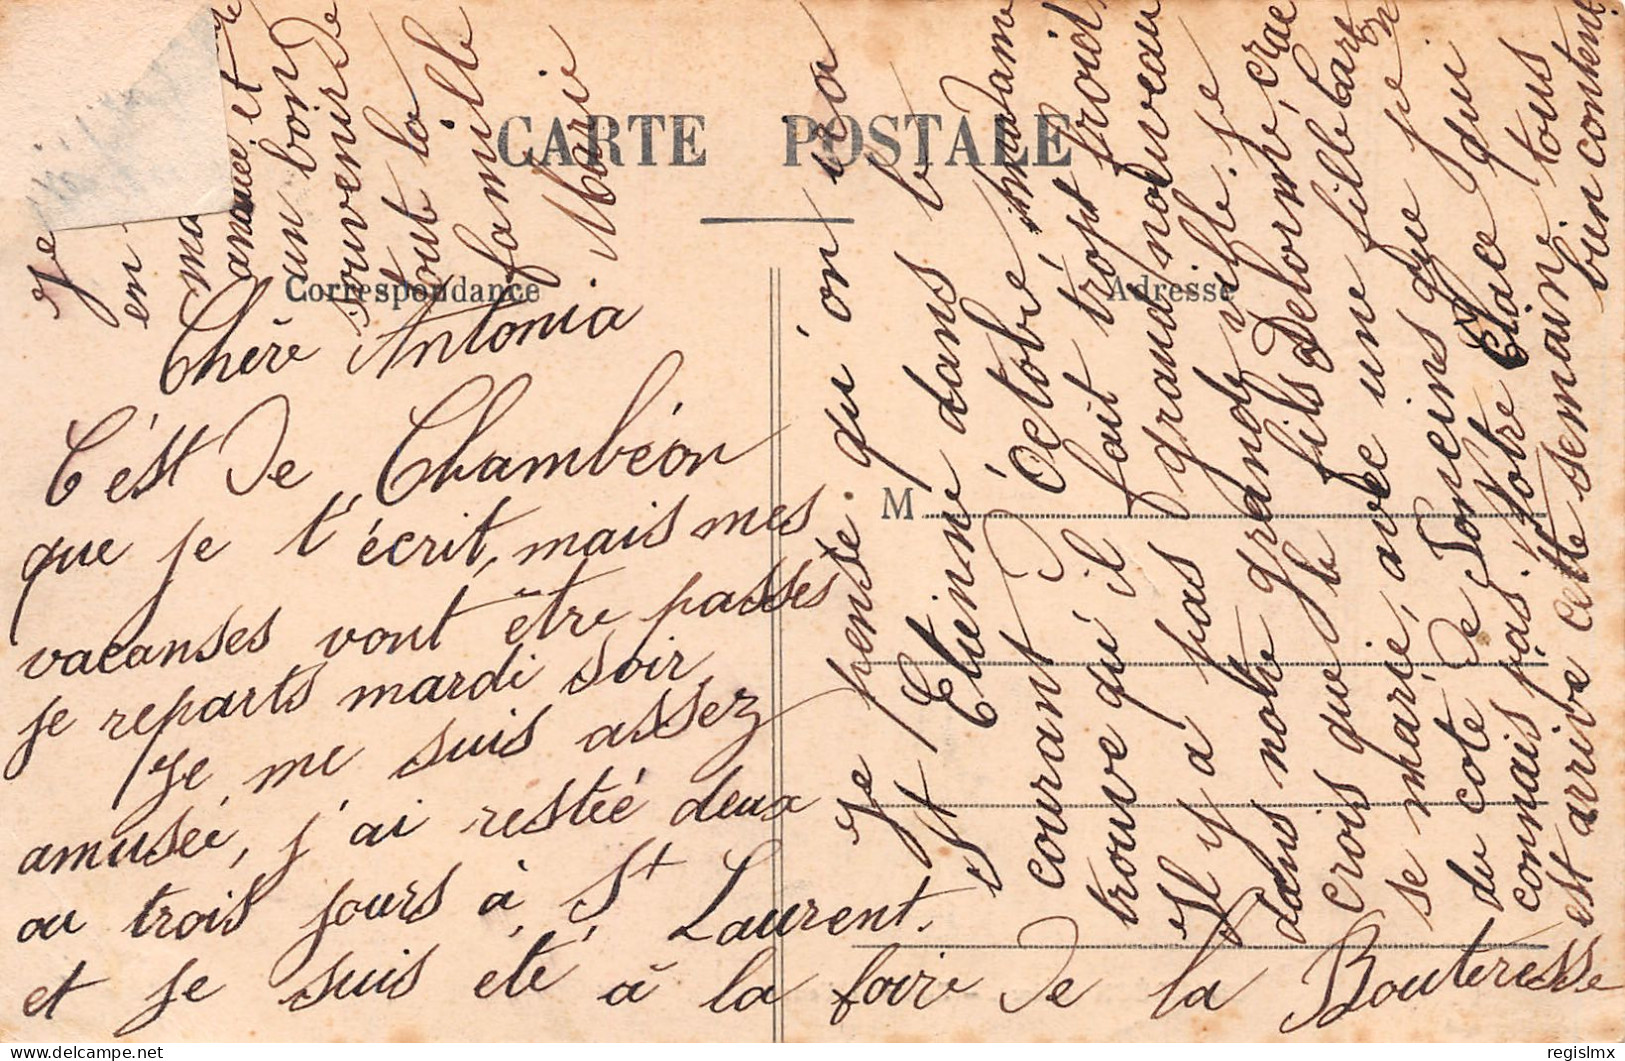 CARTE POSTALE
Correspondance
Adresse
M
Chère Antonia
C'est de Chambéon
que je t'écrit, mais mes
vacanses vont être passés
je reparts mardi soir
Je me suis assez
amusée, j'ai restée deux
ou trois jours à St Laurent.
et je suis été à la foire de la Bouteresse
Je pense qu'on ira
à St Etienne dans l
courant d'Octobre madame
trouve qu'il fait tropt froid,
Il y a pas grand nouveau
dans notre grande ville. Je
crois que le fils Delorme, crae
se marie, avec une fille
du coté de Poncins que je
connais pas. Notre Claice qui
est arrivé cette semaine tous
bien content
Je
en
ma
amie et
un bon
souvenir de
tout la
famille
Marie
regislmx
delcampe.net